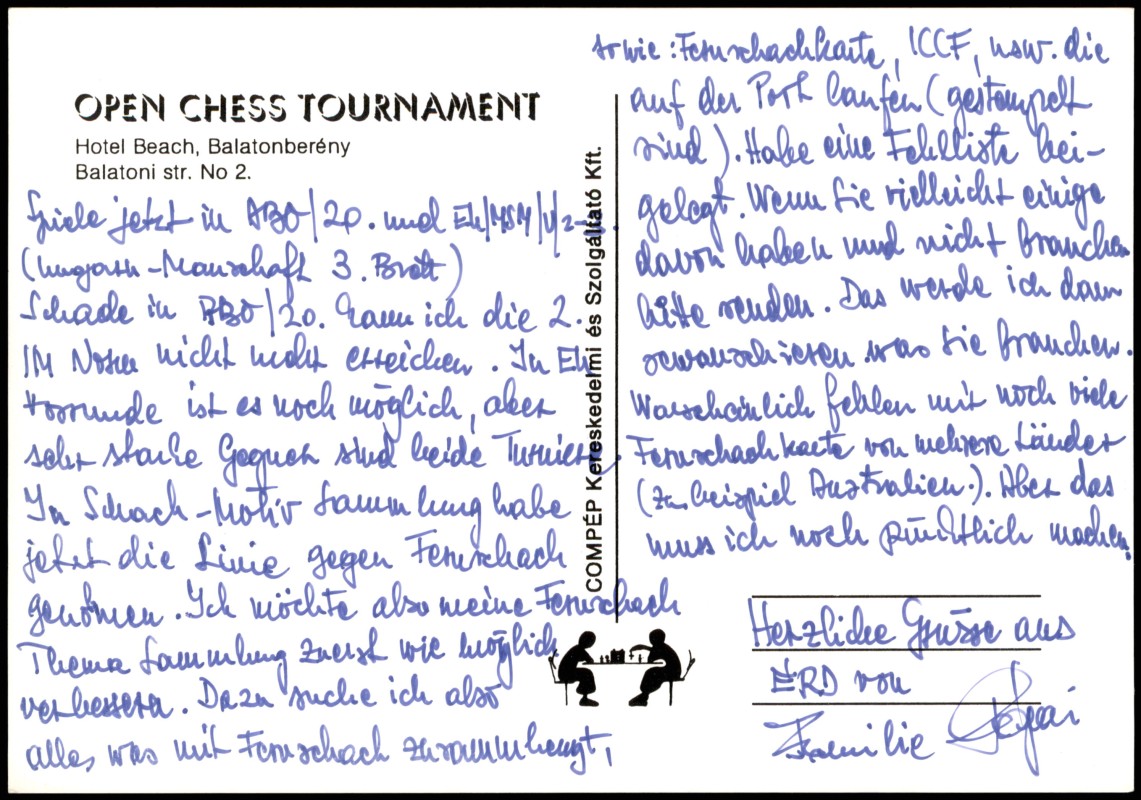 OPEN CHESS TOURNAMENT
Hotel Beach, Balatonberény
Balatoni str. No 2.
Spiele jetzt in BBO/20. und
(ungarn-Manschaft 3. Brett)
Schade in BBO/20. kann ich die 2.
IM Norm nicht mehr erreichen. In
Vorrunde ist es noch möglich, aber
sehr starke Gegner sind beide Turniere.
In Schach-Motiv Sammlung habe
jetzt die Linie gegen Fernschach
genommen. Ich möchte also meine Fernschach
Thema Sammlung zuerst wie möglich
verbessern. Dazu suche ich also
alles, was mit Fernschach zusammhengt,
COMPÉP Kereskedelmi és Szolgáltató Kft.
sowie: Fernschachkarte, ICCF, usw. die
auf der Post laufen (gestempelt
sind). Habe eine Fehlliste bei-
gelegt. Wenn Sie vielleicht einige
davon haben und nicht brauchen
bitte senden. Das werde ich dann
rewanschieren was Sie brauchen.
Warscheinlich fehlen mit noch viele
Fernschachkarte von mehrere Länder
(zu beispiel Australien.). Aber das
muss ich noch pünktlich machen.
Herzliche Grüsse aus
ÉRD von
Familie